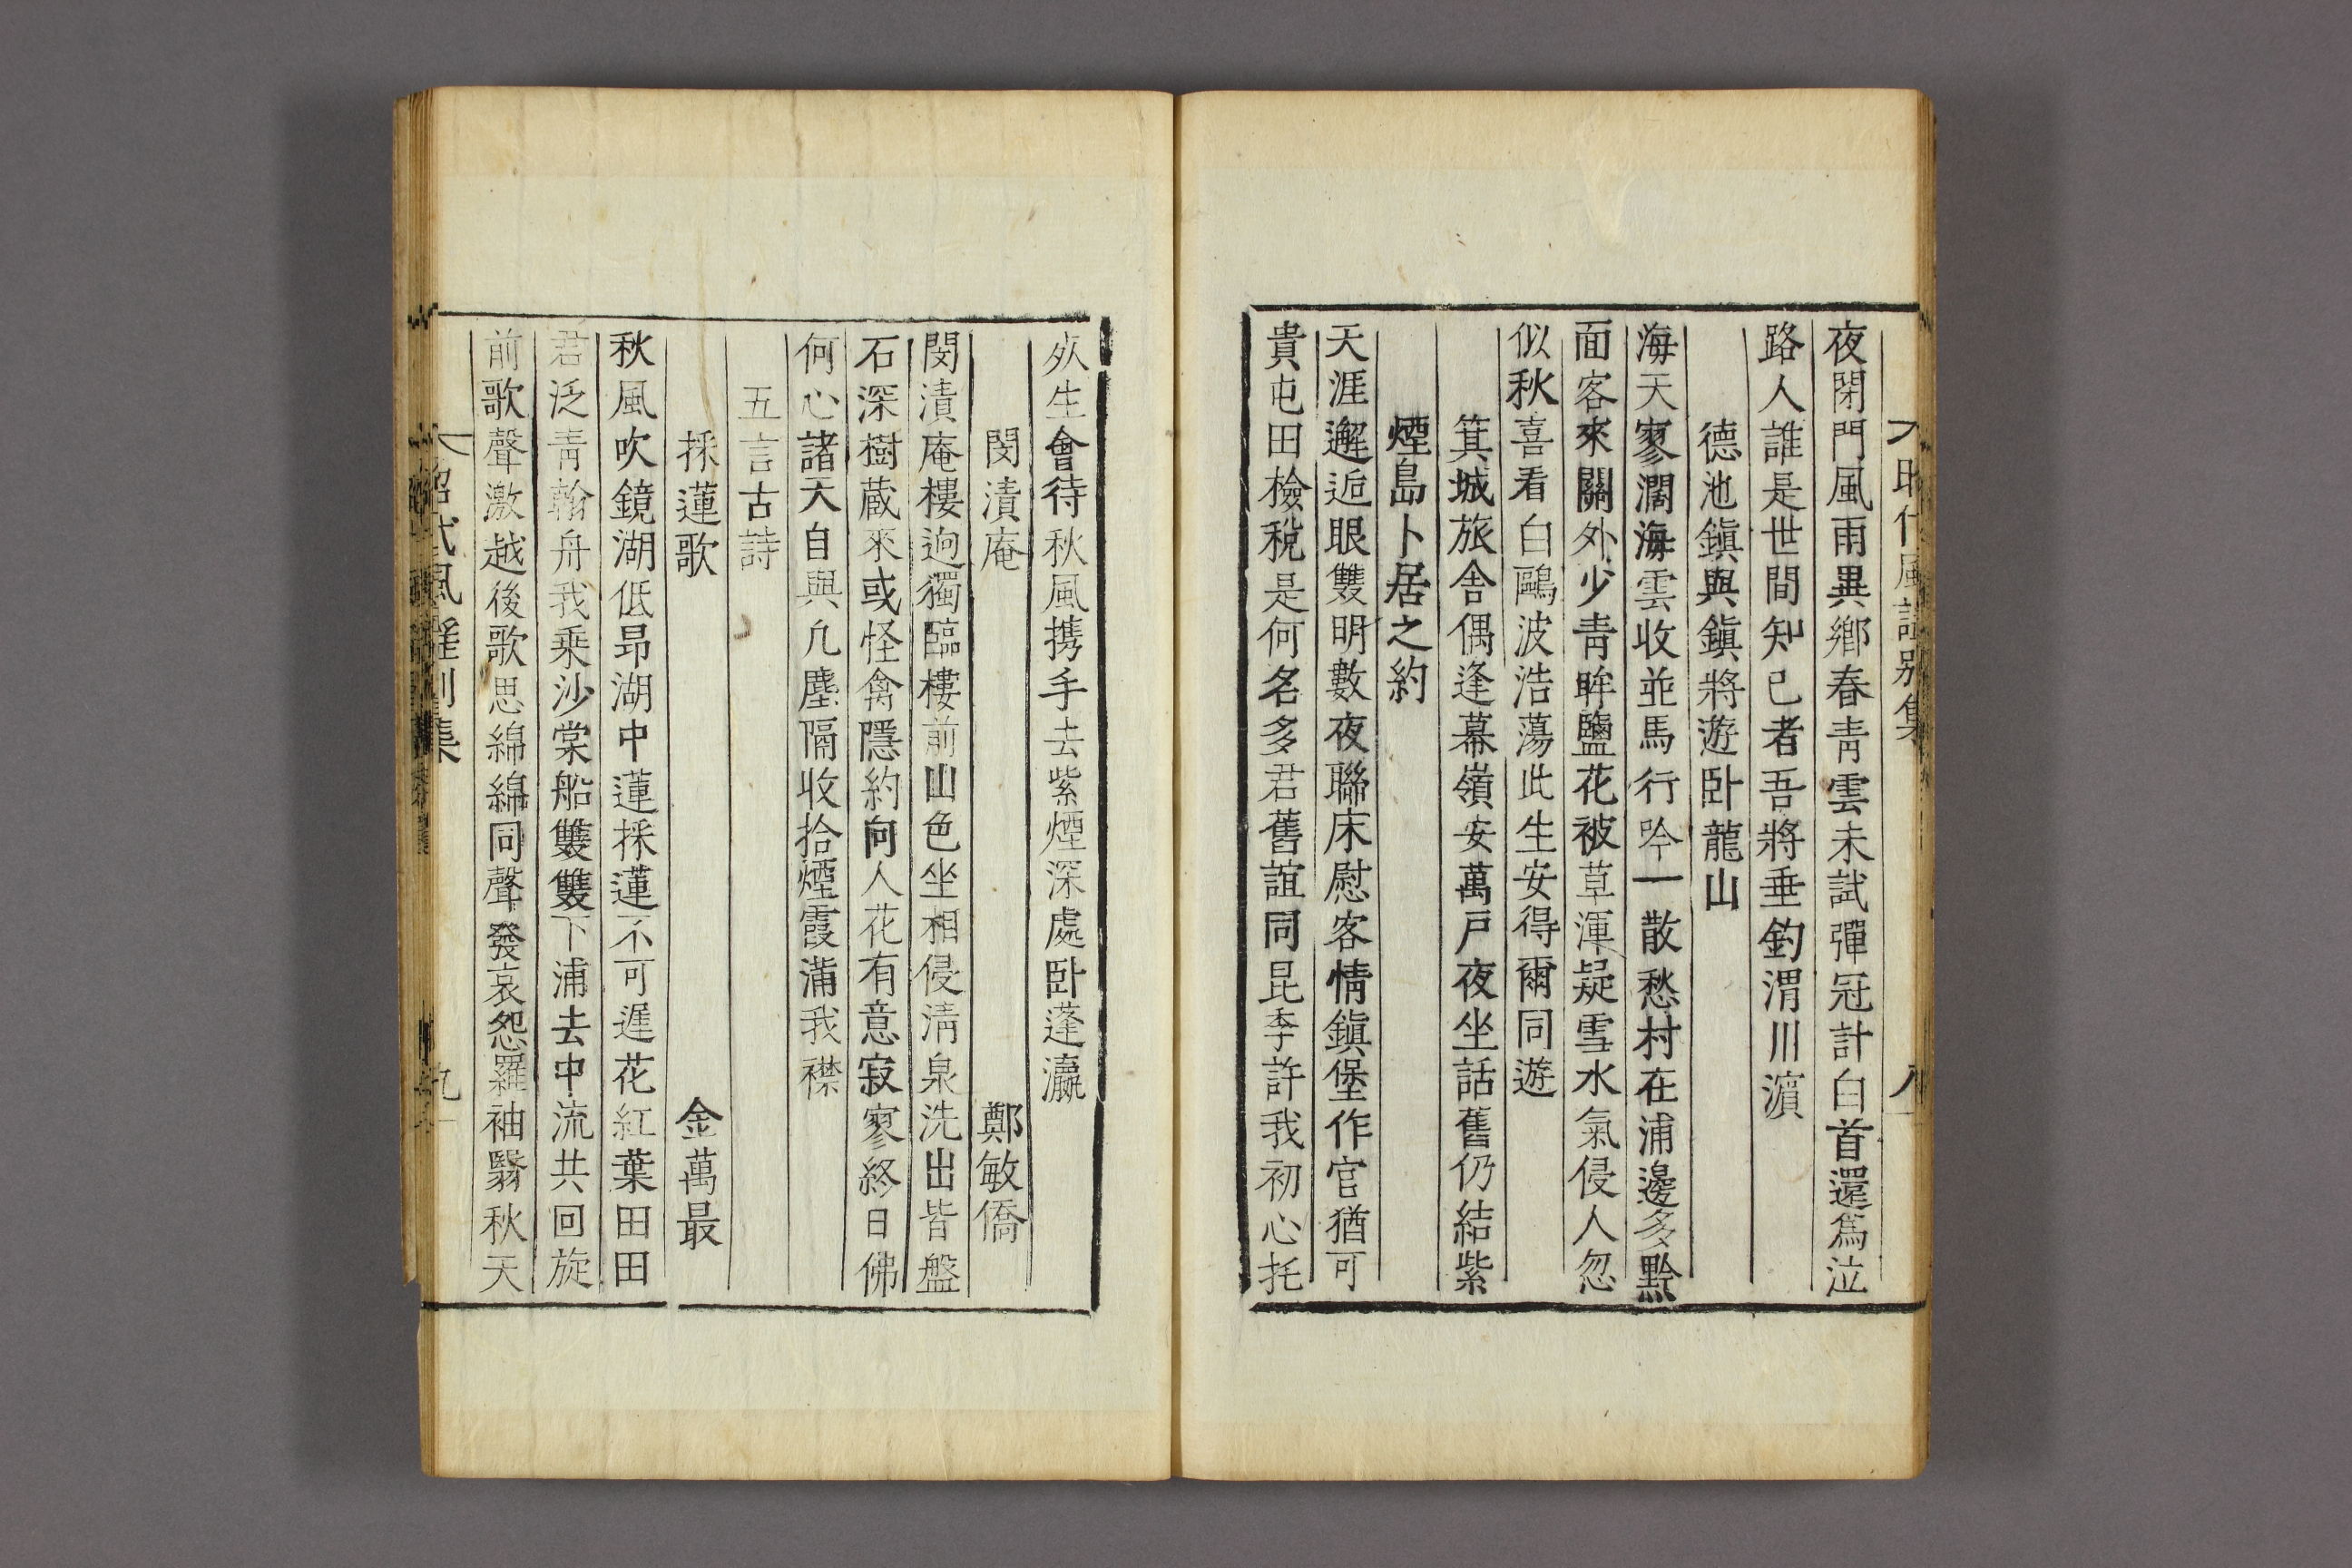 昭代風謠別集 八
夜閑門風雨異鄕春靑雲未試彈冠計白首還爲泣
路人誰是世間知己者吾將垂釣渭川濵
德池鎭與鎭將遊卧龍山
海天寥濶海雲收並馬行吟一散愁村在浦邊多黙
面客來關外少靑眸鹽花被草渾疑雪水氣侵人忽
似秋喜看白鷗波浩蕩此生安得爾同遊
箕城旅舍偶逢幕嶺安萬戶夜坐話舊仍結紫
煙島卜居之約
天涯邂逅眼雙明數夜聯床慰客情鎭堡作官猶可
貴屯田檢稅是何名多君舊誼同昆季許我初心托
㱙生會待秋風携手去紫煙深處卧蓬瀛
閔漬庵 鄭敏僑
閔漬庵樓逈獨臨樓前山色坐相侵淸泉洗出皆盤
石深樹蔵來或怪禽隱約向人花有意寂寥終日佛
何心諸天自與凡塵隔收拾煙霞滿我襟
五言古詩
採蓮歌 金萬最
秋風吹鏡湖低昻湖中蓮採蓮不可遲花紅葉田田
君泛靑翰舟我乗沙棠船雙雙下浦去中流共回旋
前歌聲激越後歌思綿綿同聲發哀怨羅袖翳秋天
昭代風謠別集 九